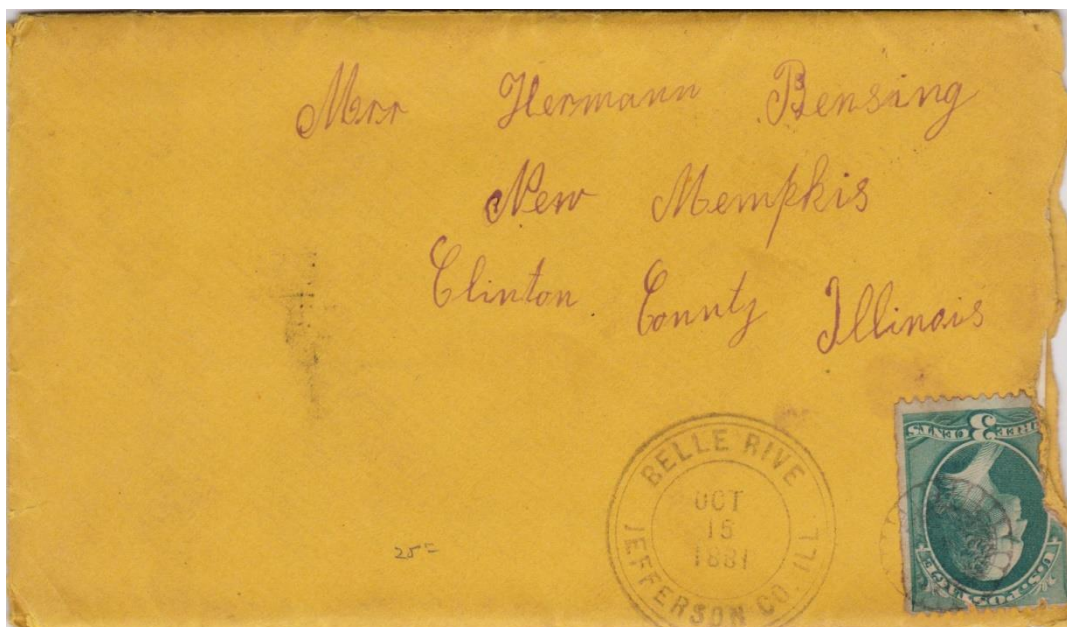 Mrr Hermann Bensing
New Memphis
Clinton County Illinois
BELLE RIVE
OCT
15
1881
JEFFERSON CO. ILL
25=
THREE 3 CENTS
U.S. POSTAGE